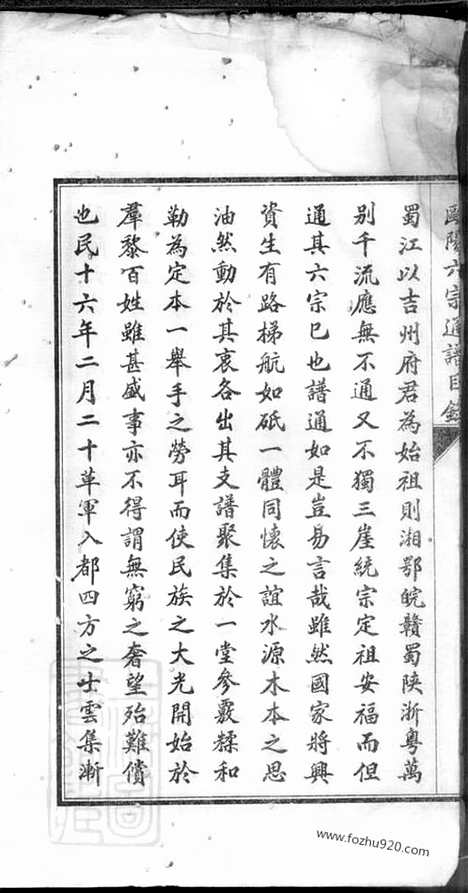 歐陽六宗通譜目錄
蜀江以吉州府君為始祖則湘鄂皖贛蜀陝浙粵萬
別千流應無不通又不獨三崖統宗定祖安福而但
通其六宗已也譜通如是豈易言哉雖然國家將興
資生有路梯航如砥一體同懷之誼水源木本之思
油然動於其衷各出其支譜聚集於一堂參覈糅和
勒為定本一舉手之勞耳而使民族之大光開始於
羣黎百姓雖甚盛事亦不得謂無窮之奢望殆難償
也民十六年二月二十革軍入都四方之士雲集漸
www.fozhu920.com